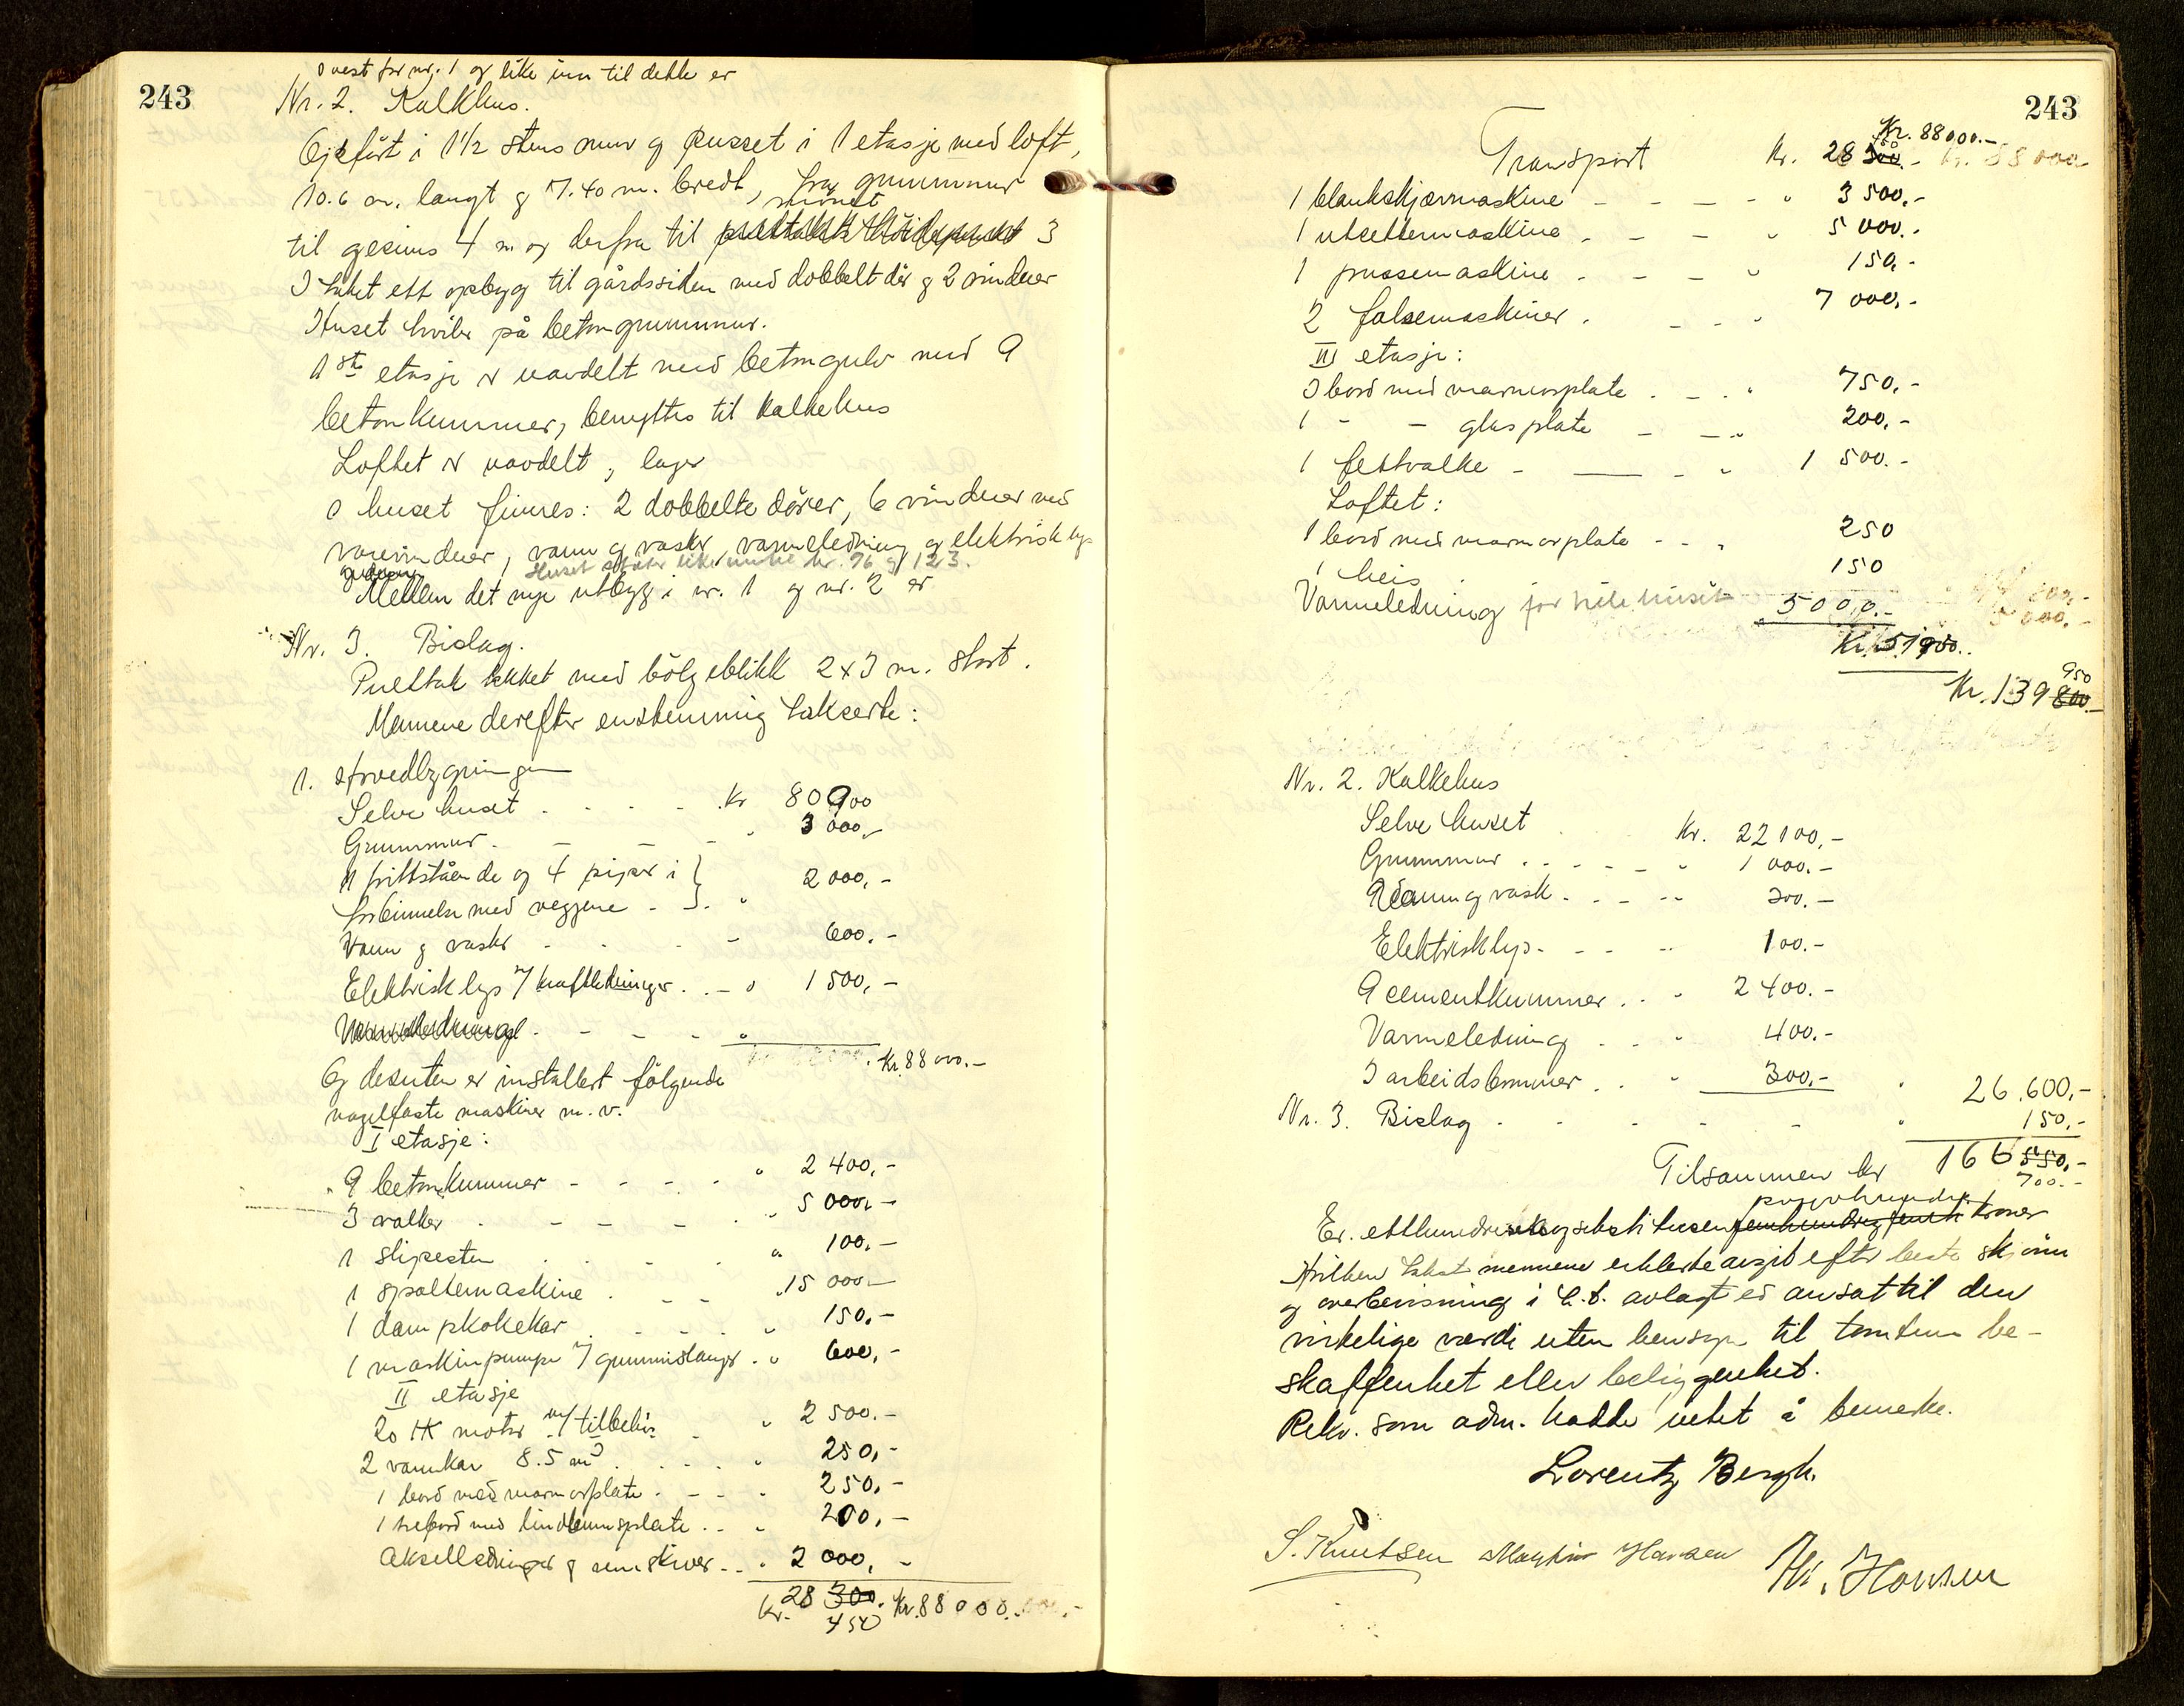 243
I vest for nr. 1 og like inn til dette er
Nr. 2. Kalkhus.
Opført i 1 1/2 stens mur og pusset i 1 etasje med loft,
10.6 m. langt og 7.40 m. bredt, fra grunnmur
mønet
til gesims 4 m og derfra til 3
I taket ett opbygg til gårdssiden med dobbelt dør og 2 vinduer
Huset hviler på betongrunnmur.
1ste etasje er uavdelt med betongulv med 9
betonkummer, benyttes til kalkehus
Loftet er uavdelt, lager
I huset finnes: 2 dobbelte dører, 6 vinduer med
varevinduer, vann og vaskr, varmeledning og elektrisk lys
Huset støter like inntil nr. 76 og 123.
Mellem det nye utbygg i nr. 1 og nr. 2 er
Nr. 3. Bislag.
Pulttak tekket med bølgeblikk 2 x 3 m. stort.
Mennene derefter enstemmig takserte:
1. Hovedbygningen
Selve huset . . . . Kr 80 900
Grunnmur. - - - " 3 000,-
11 frittstående og 4 piper i }
forbinnelse med veggene - } . " 2 000,-
Vann og vaskr - . . - 600.-
Elektrisk lys m/ kraftledninger . . - " 1 500,-
Varmeledning . - - - "
Kr. 88 000.-
Og desuten er installert følgende
nagelfaste maskiner m. v.
I etasje:
9 betonkummer - - - . " 2 400,-
3 valker . - - - . " 5 000,-
1 slipesten . . . . " 100.-
1 spaltemaskine . - - " 15 000.-
1 dampkokekar . - - . " 150.-
1 maskinpumpe m/ gummislanger . " 600,-
II etasje
20 HK motor m/ tilbehør - " 2 500.-
2 vannkar 8.5 m3 . . . . " 250,-
1 bord med marmorplate . - - . 250.-
1 trebord med linoleumsplate . . " 200,-
Akselledninger og remskiver - . . " 2 000,-
Kr. 28 300. Kr. 88 000.
450
243
Kr. 88000.-
Transport Kr. 28 300.-
1 blankskjærmaskine - - - - " 3 500.-
1 utsettermaskine . - - " 5 000.-
1 pussemaskine . - - " 150,-
2 falsemaskiner . - - " 7 000,-
III etasje:
3 bord med marmorplate . - . " 750.-
1 - - glasplate - - " 200,-
1 fettvalke - - - " 1 500.-
Loftet:
1 bord med marmorplate - - " 250
1 heis . 150
Varmeledning for hele huset 5000.-
Kr. 51950..
950
Kr. 139 800.-
Nr. 2. Kalkehus
Selve huset Kr. 22 100,-
Grunnmur . . - - - " 1 000.-
Vann og vask . - - - - 300.-
Elektrisk lys - - - - 100.-
9 cementkummer . . . 2 400.-
Varmeledning . . " 400.-
3 arbeidsbommer . . " 300,- " 26.600,-
Nr. 3. Bislag - - - - - " 150,-
Tilsammen kr 166 550,-
700.-
Er. etthundreogsekstiseks tusen kroner
Hvilken takst mennene erklærte avgitt efter beste skjønn
og overbevisning i h. t. avlagt ed ansat til den
virkelige værdi uten hensyn til tomtens be-
skaffenhet eller beliggenhet.
Rekv. som adm. hadde intet å bemerke.
Lorentz Bergh.
S. Knutsen Hansen